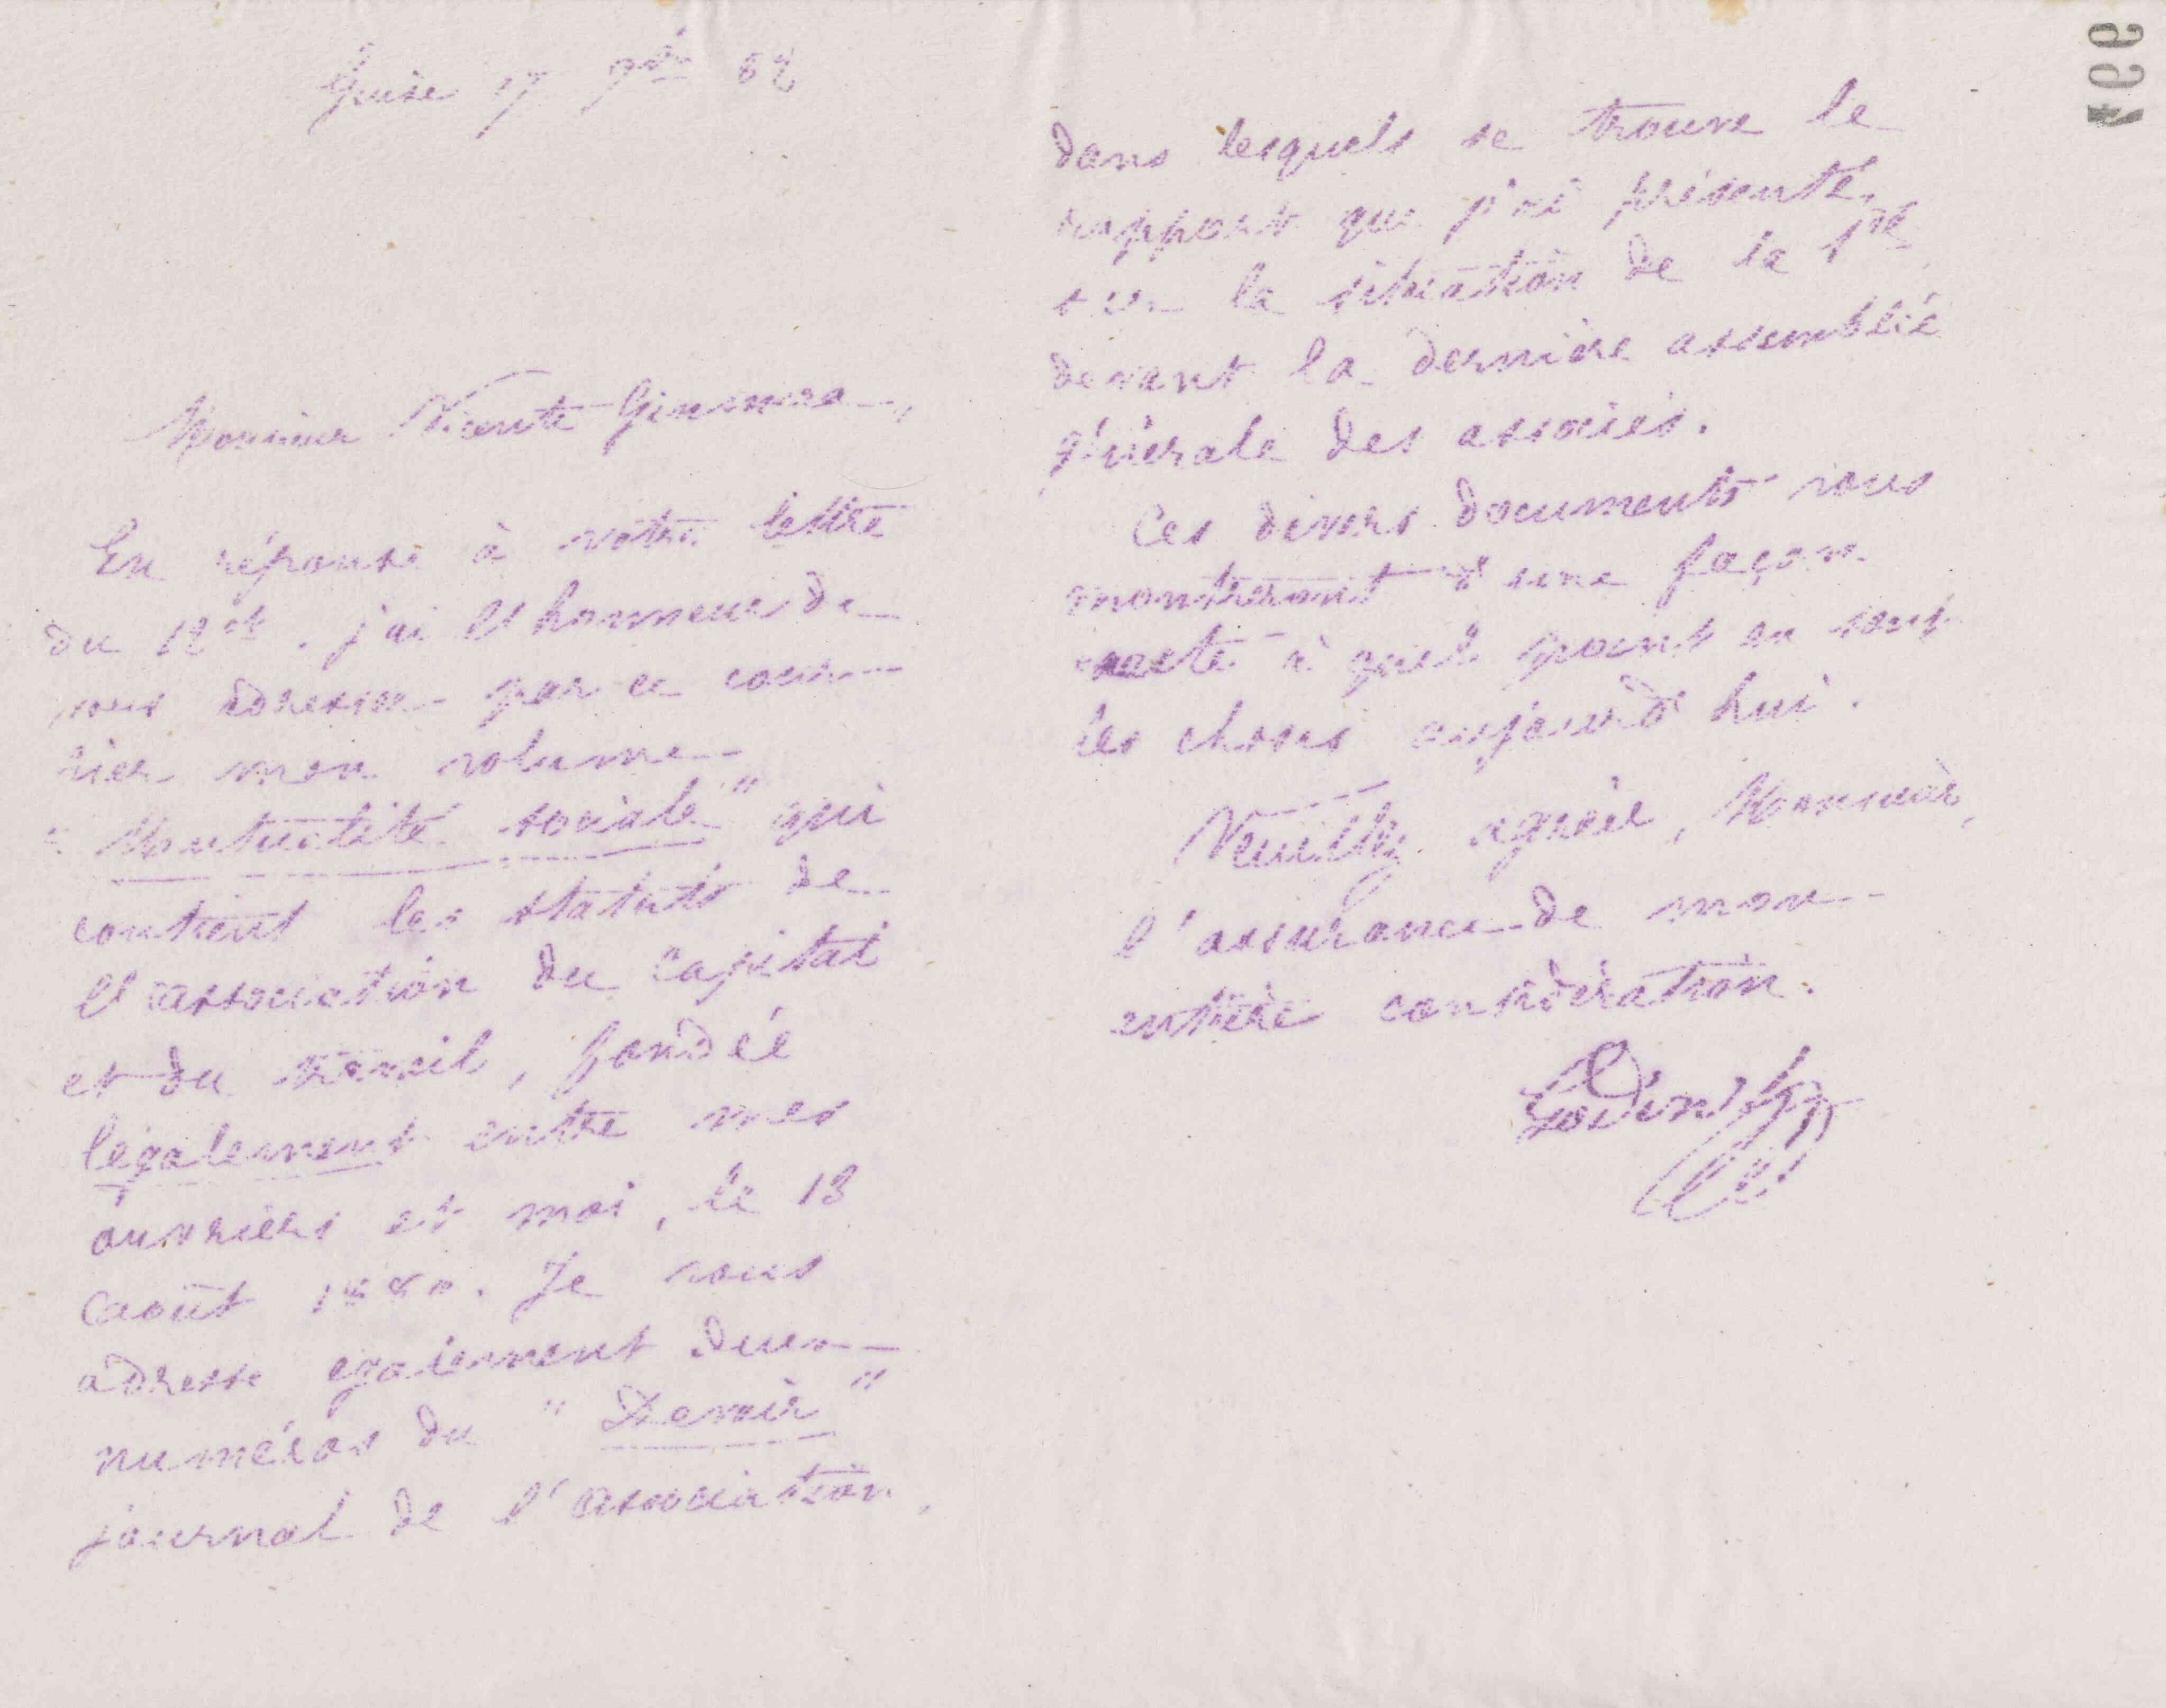 Guise 17 9bre 82
Monsieur Vicente
En réponse à votre lettre
du 12 ct. j'ai l'honneur de
vous adresser par ce cour-
rier mon volume
" Mutualité sociale " qui
contient les statuts de
l'association du capital
et du travail, fondée
légalement entre mes
ouvriers et moi, le 13
août 1880. Je vous
adresse egalement deux
numéros du " Devoir "
journal de l'association,
dans lesquels se trouve le
rapport que j'ai présenté,
sur la situation de la Sté
devant la dernière assemblée
générale des associés.
Ces divers documents vous
montreront d'une façon
exacte à quel point en sont
les choses aujourd'hui.
Veuillez agréer, Monsieur,
l'assurance de mon
entière considération.
Godin
466